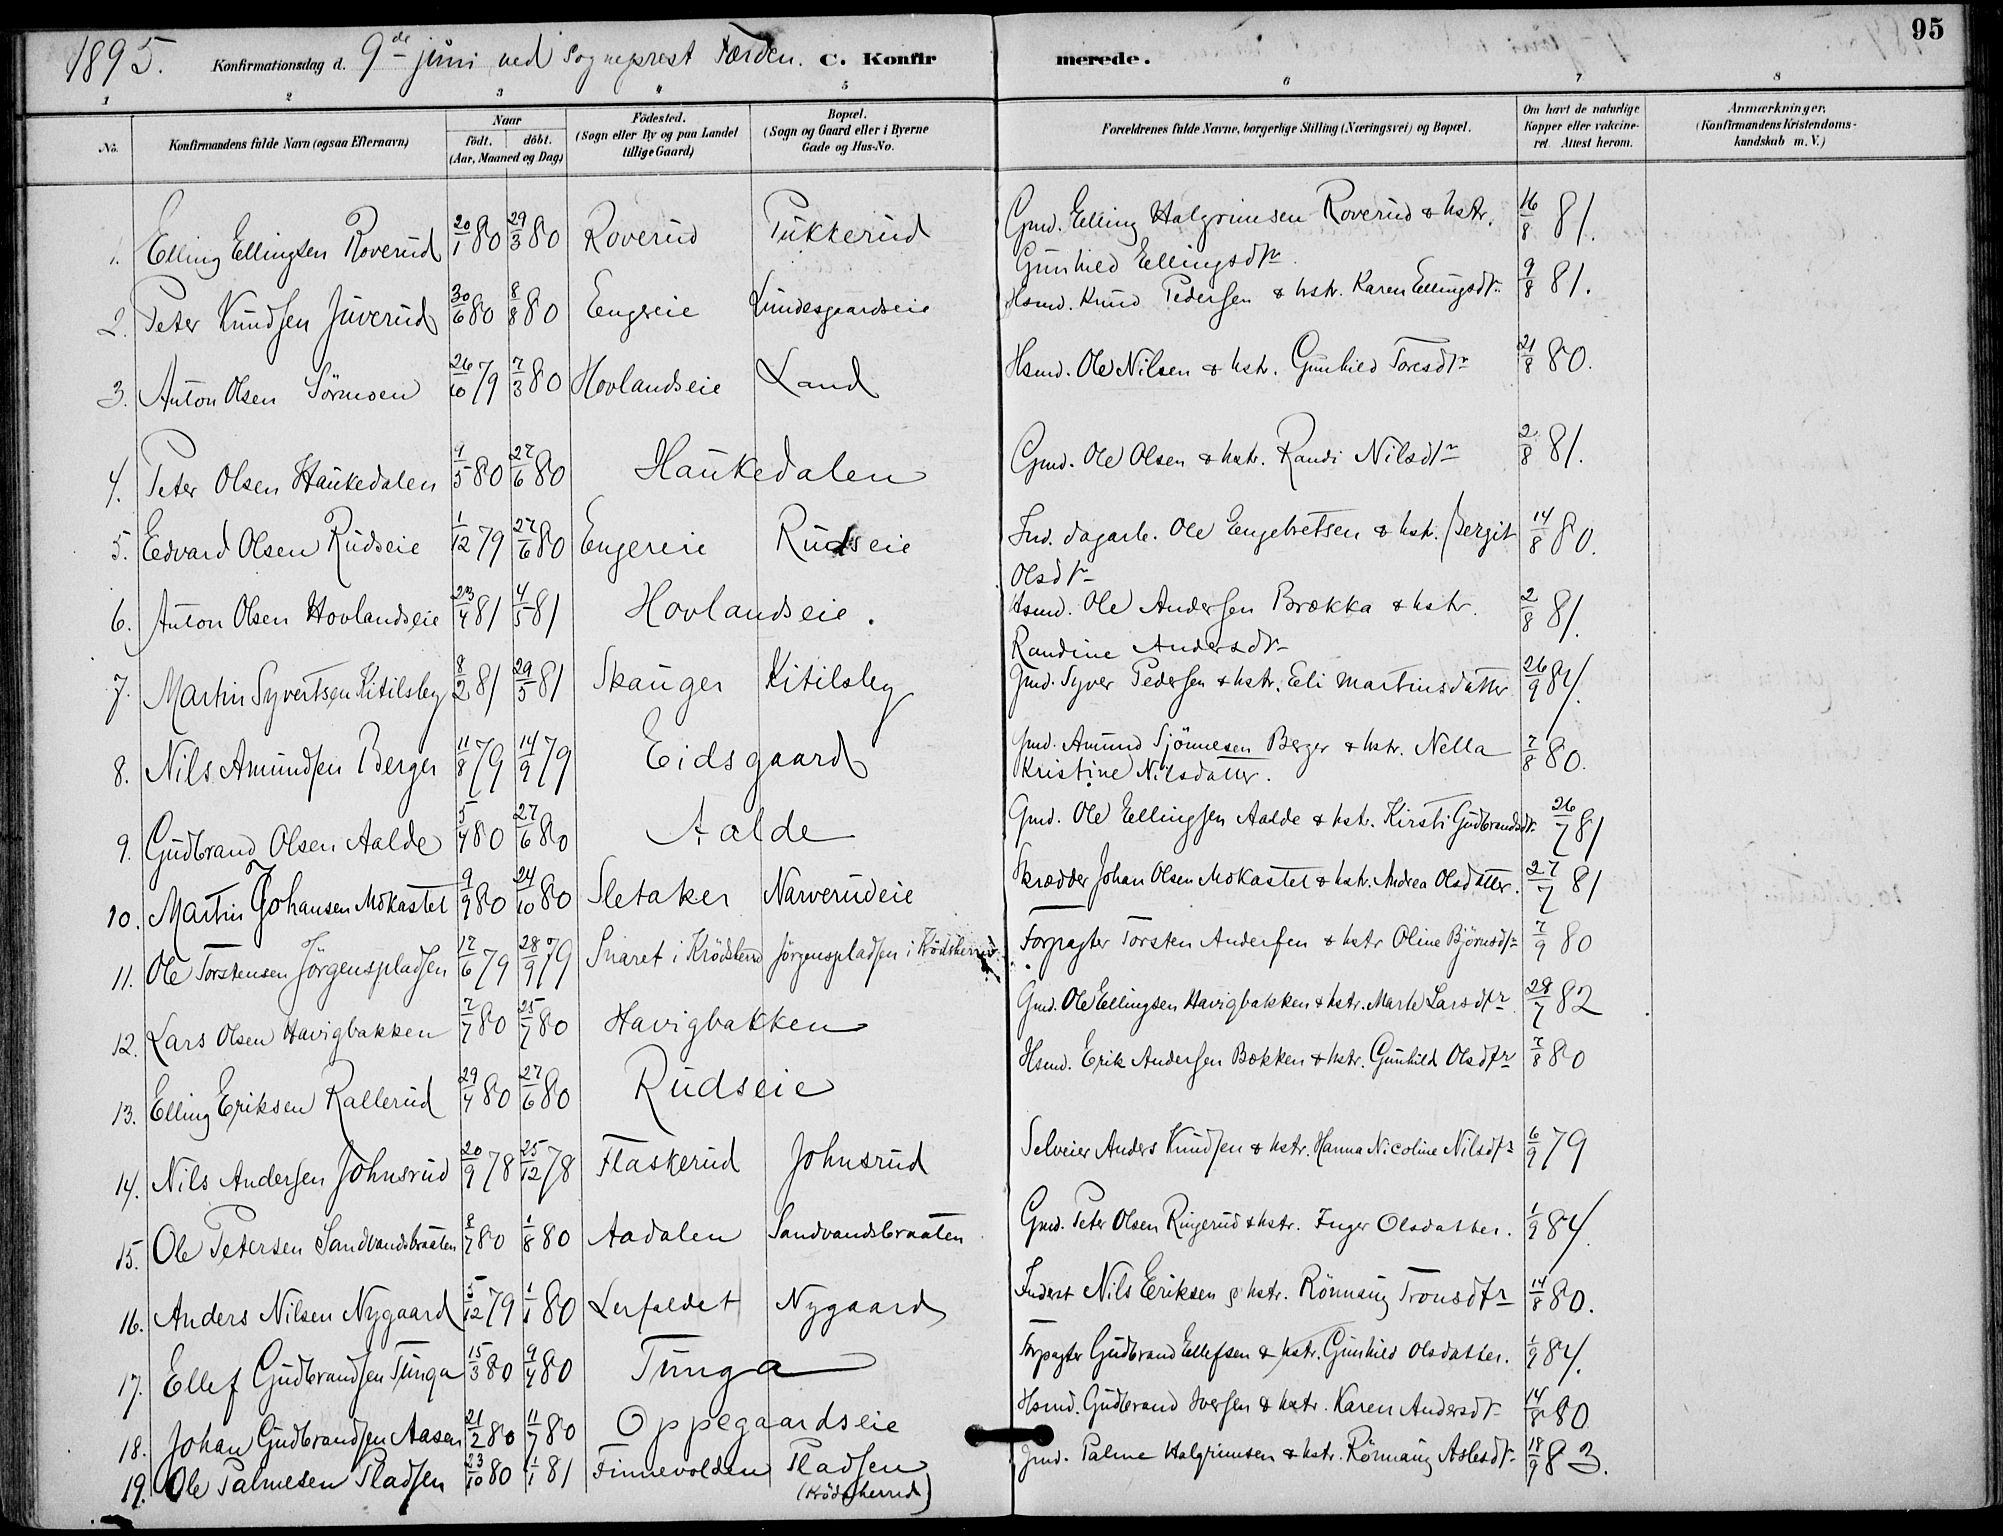 95
1895. Konfirmationsdag d. 9de juni ved sogneprest Færden. C. Konfirmerede.
1 2 3 4 5 6 7 8
No. Konfirmandens fulde Navn (ogsaa Efternavn) Naar födt. döbt. (Aar, Maaned og Dag) Födested. (Sogn eller By og paa Landet tillige Gaard) Bopæl. (Sogn og Gaard eller i Byerne Gade og Hus-No. Forældrenes fulde Navne, borgerlige Stilling (Næringsvei) og Bopæl. Om havt de naturlige Kopper eller vakcineret. Attest herom. Anmærkninger. (Konfirmandens Kristendomskundskab m. V.)
1. Elling Ellingsen Roverud 20/1 80 29/3 80 Roverud Pukkerud Gmd. Elling Halgrimsen Roverud & hstr. 16/8 81.
Gunhild Ellingsdtr
2. Peter Knudsen Juverud 30/6 80 8/8 80 Engereie Lundesgaardseie Hsmd. Knud Pedersen & hstr. Karen Ellingsdtr 9/8 81.
3. Anton Olsen Sörmoen 26/10 79 7/3 80 Hovlandseie Land Hsmd. Ole Nilsen & hstr. Gunhild Toresdtr 21/8 80.
4. Peter Olsen Haukedalen 9/5 80 27/6 80 Haukedalen Gmd. Ole Olsen & hstr. Randi Nilsdtr 2/8 81.
5. Edvard Olsen Rudseie 1/12 79 27/6 80 Engereie Rudseie Ind. dagarb. Ole Engebretsen & hstr. Bergit 14/8 80.
Olsdtr
6. Anton Olsen Hovlandseie 23/4 81 4/5 81 Hovlandseie. Hsmd. Ole Andersen Brækka & hstr. 2/8 81.
Randine Andersdtr
7. Martin Syvertsen Kitilsby 8/2 81 29/5 81 Skauger Kitilsby Gmd. Syver Pedersen & hstr. Eli Martinsdatter 26/9 84.
8. Nils Amundsen Berger 11/8 79 14/9 79 Eidsgaard Gmd. Amund Sjönnesen Berger & hstr. Nella 7/8 80.
Kristine Nilsdatter.
9. Gudbrand Olsen Aalde 5/4 80 27/6 80 Aalde Gmd. Ole Ellingsen Aalde & hstr. Kirsti Gudbrandsdtr 26/7 81
10. Martin Johansen Mokastet 9/9 80 24/10 80 Sletaker Narverudeie Skrædder Johan Olsen Mokastet & hstr. Andrea Olsdatter. 27/7 81
11. Ole Torstensen Jörgenspladsen 17/6 79 28/9 79 Snaret i Krödsherred Jörgenspladsen i Krödsherred. Forpagter Torsten Andersen & hstr Oline Björnsdtr 7/9 80
12. Lars Olsen Havigbakken 7/7 80 25/7 80 Havigbakken Gmd. Ole Ellingsen Havigbakken & hstr. Marte Larsdtr 28/7 82
13. Elling Eriksen Rallerud 29/4 80 27/6 80 Rudseie Hsmd. Erik Andersen Bækken & hstr. Gunhild Olsdtr 7/8 80
14. Nils Andersen Johnsrud 20/9 78 25/12 78 Flaskerud Johnsrud Selveier Anders Knudsen & hstr. Hanna Nicoline Nilsdtr 6/9 79
15. Ole Petersen Sandvandsbraaten 8/7 80 1/8 80 Aadalen Sandvandsbraaten Gmd. Peter Olsen Ringerud & hstr. Inger Olsdatter. 1/9 84.
16. Anders Nilsen Nygaard 5/12 79 1/1 80 Lerfaldet Nygaard Inderst Nils Eriksen & hstr. Rönnaug Tronsdtr 14/8 80.
17. Ellef Gudbrandsen Tunga 15/3 80 9/4 80 Tunga Forpagter Gudbrand Ellefsen & hstr. Gunhild Olsdatter. 1/9 84.
18. Johan Gudbrandsen Aasen 21/2 80 11/7 80 Oppegaardseie Hsmd. Gudbrand Iversen & hstr. Karen Andersdtr 14/8 80
19. Ole Palmesen Pladsen 23/10 80 1/1 81 Finnevolden Pladsen Gmd. Palme Halgrimsen & hstr. Rönnaug Aslesdtr 18/9 83.
(Krödsherred)